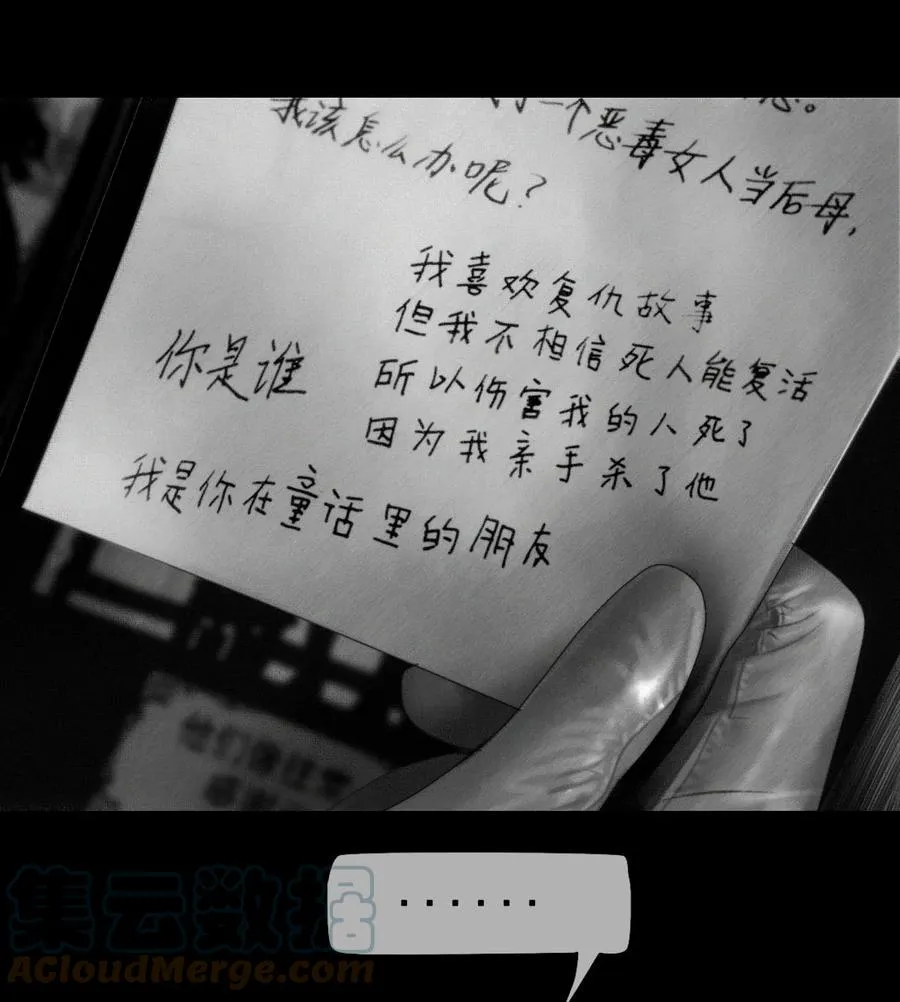 一个恶毒女人当后母,
我该怎么办呢?
我喜欢复仇故事
但我不相信死人能复活
所以伤害我的人死了
因为我亲手杀了他
你是谁
我是你在童话里的朋友
他们像往常
······
集云数据
ACloudMerge.com